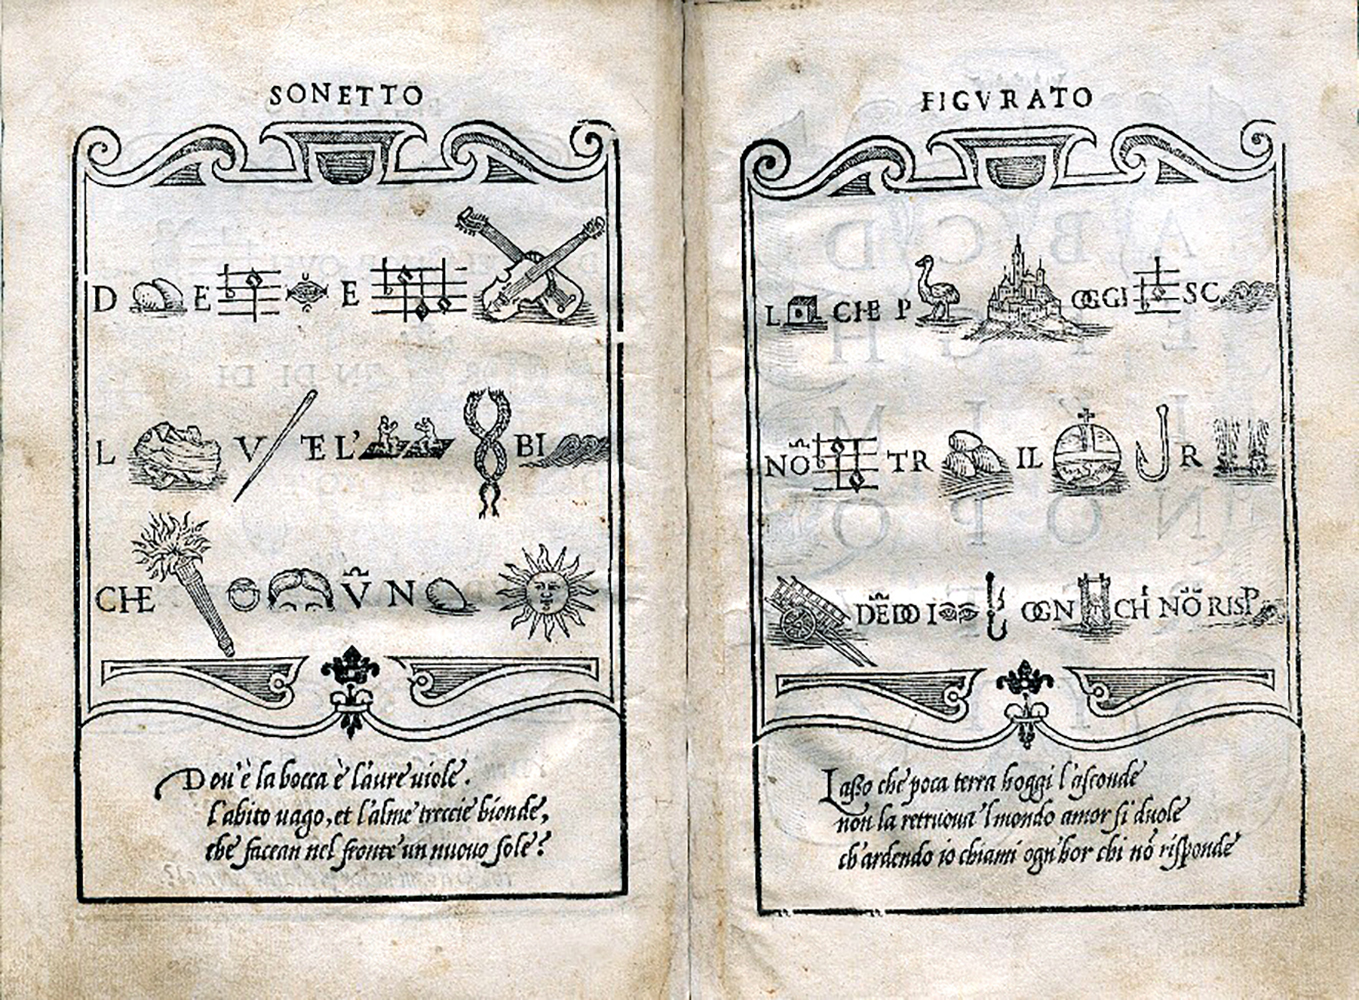 SONETTO
D E E
L V E L' BI
CHE Ṽ N
Dou'è la bocca è l'aure uiole.
l'abito uago, et l'alme treccie bionde,
che facean nel fronte un nuouo sole?
FIGVRATO
L CHE P OGGI SC
NÕ TR IL R
DẼDO I OGN CH NÕ RISP
Lasso che poca terra hoggi l'asconde
non la retruoua 'l mondo amor si duole
ch'ardendo io chiami ogn'hor chi nõ risponde